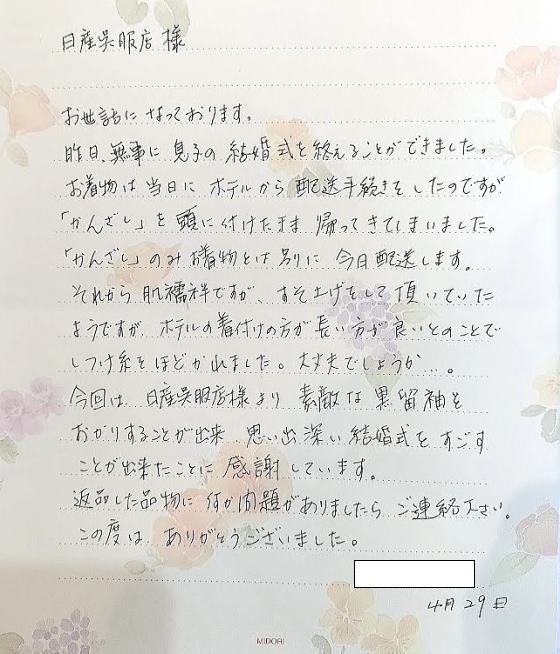 日産呉服店 様
お世話に なっております。
昨日、無事に 息子の 結婚式を終えることができました。
お着物は 当日に ホテルから 配送手続きをしたのですが
「かんざし」を 頭に付けたまま 帰ってきてしまいました。
「かんざし」のみ お着物とは 別に 今日配送します。
それから 肌襦袢ですが、すそ上げをして頂いていた
ようですが、ホテルの着付けの方が 長い方が良いとのことで
しつけ糸をほどかれました。大丈夫でしょうか…。
今回は、日産呉服店様より 素敵な 黒留袖を
おかりすることが出来、思い出深い 結婚式を すごす
ことが出来たことに 感謝しています。
返品した品物に 何か問題がありましたら ご連絡下さい。
この度は、ありがとうございました。
4月29日
MIDORI